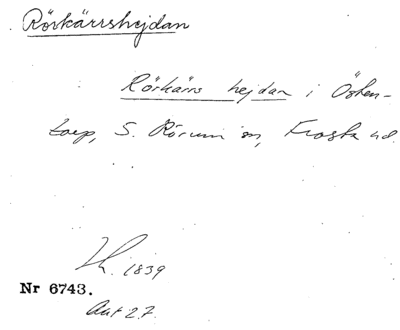 Rörkärrshejdan
Rörkärrs hejdan i Östen-
torp, S. Rörum sn, Frosta hd.
Lh. 1839
Nr 6743.
Akt 27.